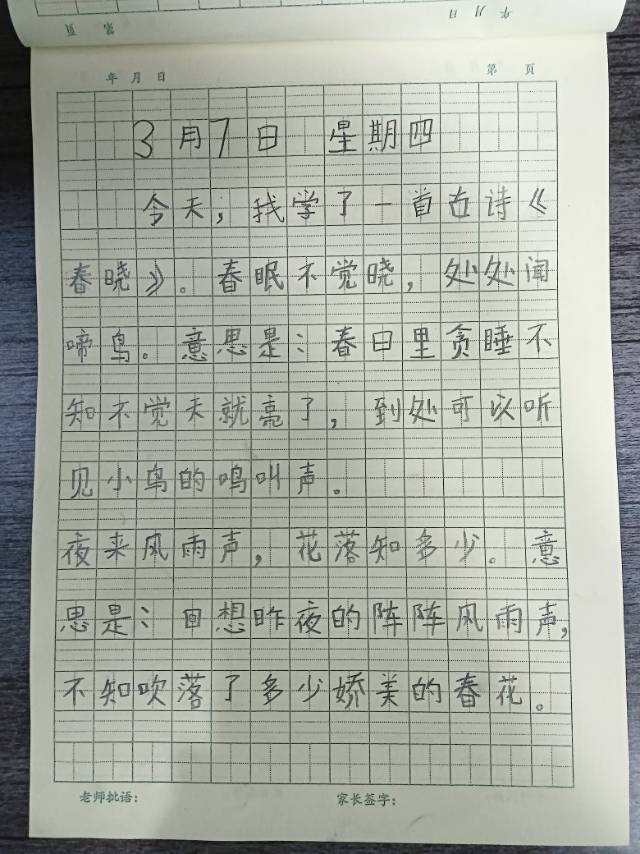 第 页 年 月 日
年 月 日 第 页
3月7日 星期四
今天，我学了一首古诗《
春晓》。春眠不觉晓，处处闻
啼鸟。意思是：春日里贪睡不
知不觉天就亮了，到处可以听
见小鸟的鸣叫声。
夜来风雨声，花落知多少。意
思是：回想昨夜的阵阵风雨声，
不知吹落了多少娇美的春花。
老师批语： 家长签字：